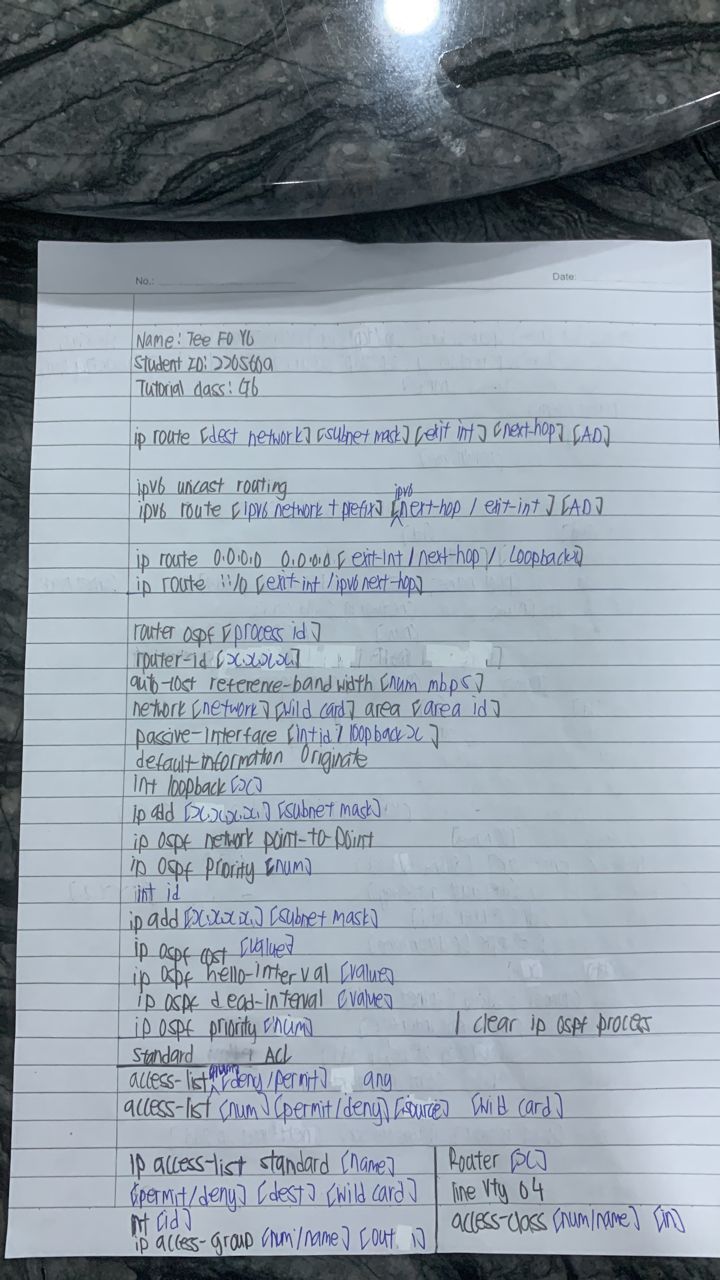 No.:
Date:
Name: Tee Fo Yo
Student ID: 2205609
Tutorial class: G6
ip route [dest network] [subnet mask] [exit int] [next-hop] [AD]
ipv6 unicast routing
ipv6 route [ipv6 network + prefix] [ipv6 next-hop / exit-int] [AD]
ip route 0.0.0.0 0.0.0.0 [exit-int / next-hop / loopback x]
ip route ::/0 [exit-int / ipv6 next-hop]
router ospf [process id]
router-id [x.x.x.x]
auto-cost reference-bandwidth [num mbps]
network [network] [wild card] area [area id]
passive-interface [int id / loopback x]
default-information originate
int loopback [x]
ip add [x.x.x.x.] [subnet mask]
ip ospf network point-to-point
ip ospf priority [num]
int id
ip add [x.x.x.x.] [subnet mask]
ip ospf cost [value]
ip ospf hello-interval [value]
ip ospf dead-interval [value]
ip ospf priority [num] | clear ip ospf process
standard ACL
access-list [num] [deny/permit] any
access-list [num] [permit/deny] [source] [wild card]
ip access-list standard [name]
[permit/deny] [dest] [wild card]
int [id]
ip access-group [num/name] [out
Router [x]
line vty 0 4
access-class [num/name] [in]